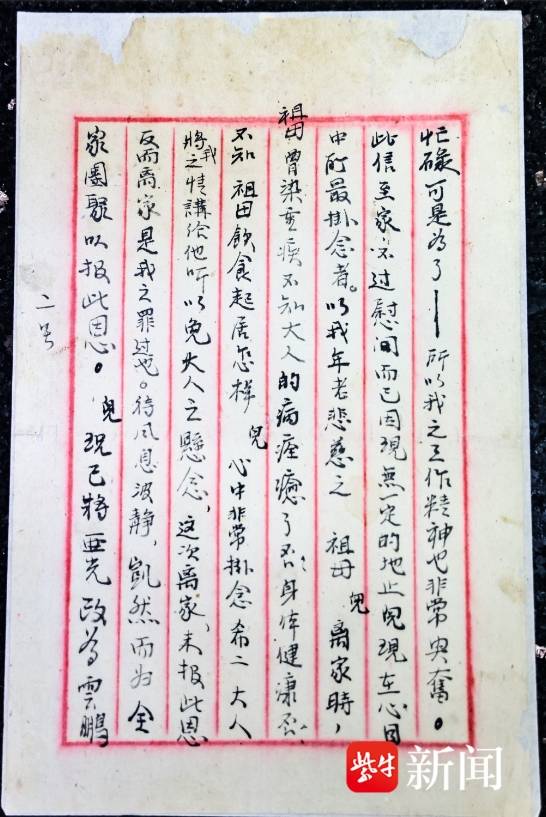 忙碌可是為了——所以我之工作精神也非常興奮。
此信至家不过慰问而已因現無一定的地止兒現在心目
中所最掛念者。以我年老悲慈之 祖母 兒 离家時,
祖母曾染重疾不知大人的病痊癒了否,身体健康否
不知 祖母飲食起居怎样 兒 心中非常掛念希二大人
將我之情講給他听以免大人之懸念,这次离家,未报此恩
反而离家是我之罪过也。待风息波静,凱然而归全
家團聚以报此恩。兒現已將亜光改为雲鵬
二号
紫牛新闻